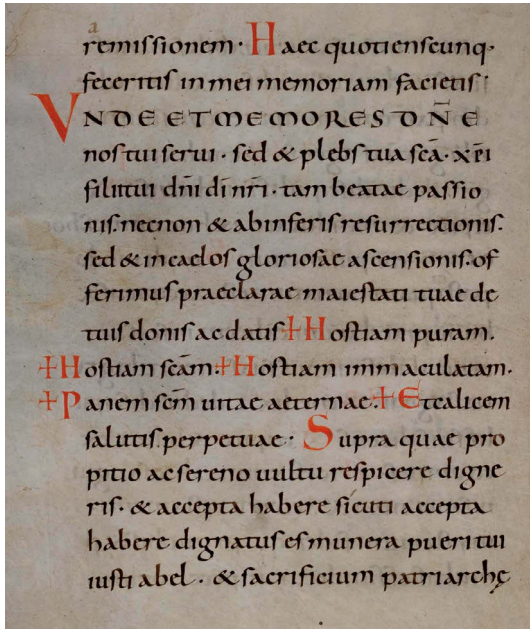 remissionem · Haec quotienscunq·
feceritis in mei memoriam facietis ·
UNDE ET MEMORES DN̄E
nos tui serui · sed & plebs tua sc̄a · xp̄i
filii tui dn̄i di nr̄i · tam beatae passio
nis. necnon & ab inferis resurrectionis.
sed & in caelos gloriosae ascensionis. of
ferimus praeclarae maiestati tuae de
tuis donis ac datis + Hostiam puram.
+ Hostiam sc̄am. + Hostiam immaculatam.
+ Panem sc̄m uitae aeternae. + Et calicem
salutis perpetuae · Supra quae pro
pitio ac sereno uultu respicere digne
ris · & accepta habere sicuti accepta
habere dignatus es munera pueri tui
iusti abel · & sacrificium patriarchę